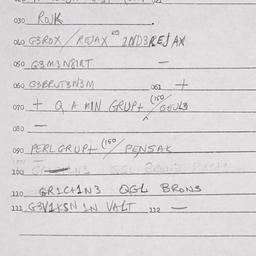 030 ROJK
040 G3ROX / REJAX KO 2ND3REJ AX
050 G3M3N8IRT —
060 G3BRUT3N3M 061 +
070 + Q A MIN GRUP+ (150 / GOUL3
080 —
090 PERLGRUP+ (150 / PENSAK
100
110 GR1C+1N3 QGL BRONS
111 G3V1KSN 1N VALT 112 —